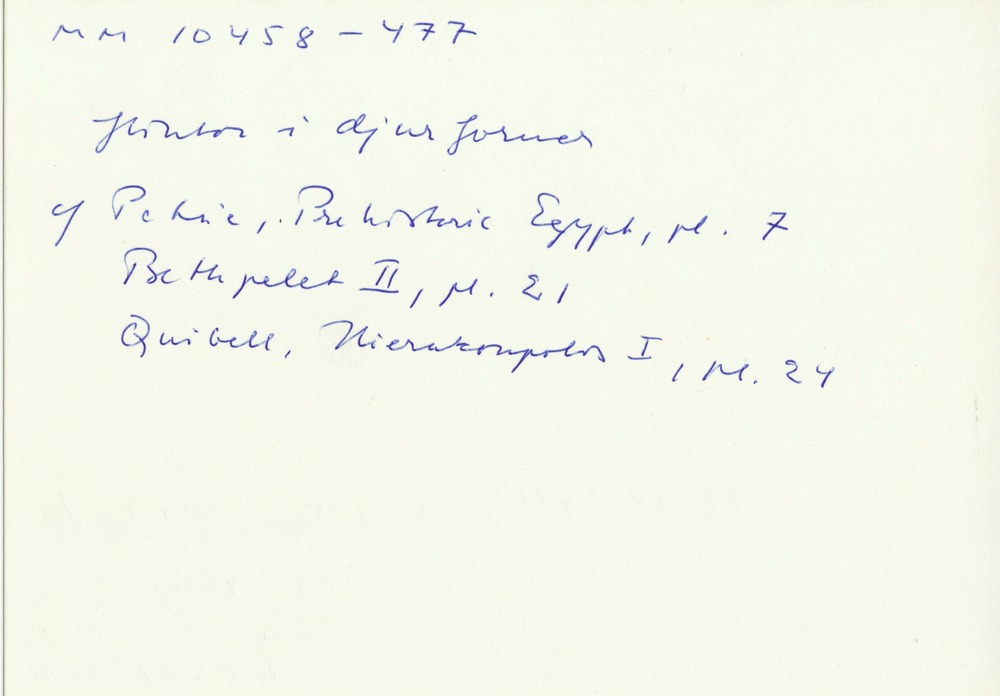 MM 10458 – 477
flintor i djurformer
cf Petrie, Prehistoric Egypt, pl. 7
Beth pelet II, pl. 21
Quibell, Hierakonpolis I, pl. 24